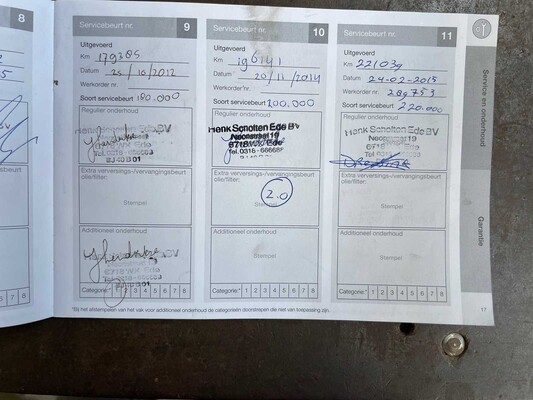 8
Servicebeurt nr. 9
Uitgevoerd
Km 179385
Datum 25/10/2012
Werkorder nr.
Soort servicebeurt 180.000
Regulier onderhoud
Extra verversings-/vervangingsbeurt
olie/filter:
Stempel
Additioneel onderhoud
6718 WX Ede
Tel. 0318 - 666688
Categorie:* 1 2 3 4 5 6 7 8
Servicebeurt nr. 10
Uitgevoerd
Km 196141
Datum 20/11/2014
Werkorder nr.
Soort servicebeurt 200.000
Regulier onderhoud
Henk Scholten Ede BV
Neonstraat 19
6718 WX Ede
Tel. 0318 - 666688
Extra verversings-/vervangingsbeurt
olie/filter:
Stempel
2.0
Additioneel onderhoud
Stempel
Categorie:* 1 2 3 4 5 6 7 8
Servicebeurt nr. 11
Uitgevoerd
Km 221039
Datum 24-02-2015
Werkorder nr. 289753
Soort servicebeurt 220.000
Regulier onderhoud
Henk Scholten Ede BV
Neonstraat 19
6718 WX Ede
Extra verversings-/vervangingsbeurt
olie/filter:
Stempel
Additioneel onderhoud
Stempel
Categorie:* 1 2 3 4 5 6 7 8
Service en onderhoud
Garantie
7 8
*Bij het afstempelen van het vak voor additioneel onderhoud de categorieën doorstrepen die niet van toepassing zijn.
17